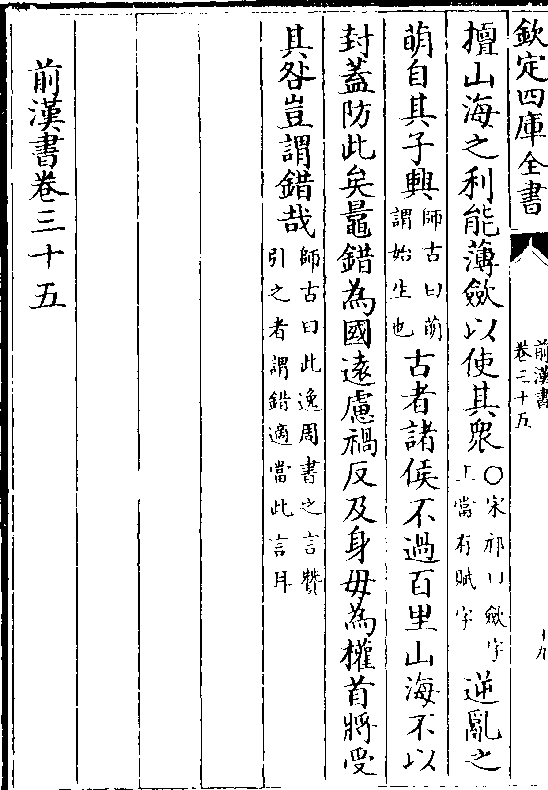 欽定四庫全書
前漢書
卷三十五
十九
擅山海之利能薄斂以使其衆○宋祁曰斂字上當有賦字逆亂之
萌自其子興師古曰萌謂始生也古者諸侯不過百里山海不以
封蓋防此矣鼂錯為國遠慮禍反及身毋為權首將受
其咎豈謂錯哉師古曰此逸周書之言贊引之者謂錯適當此言耳
前漢書卷三十五